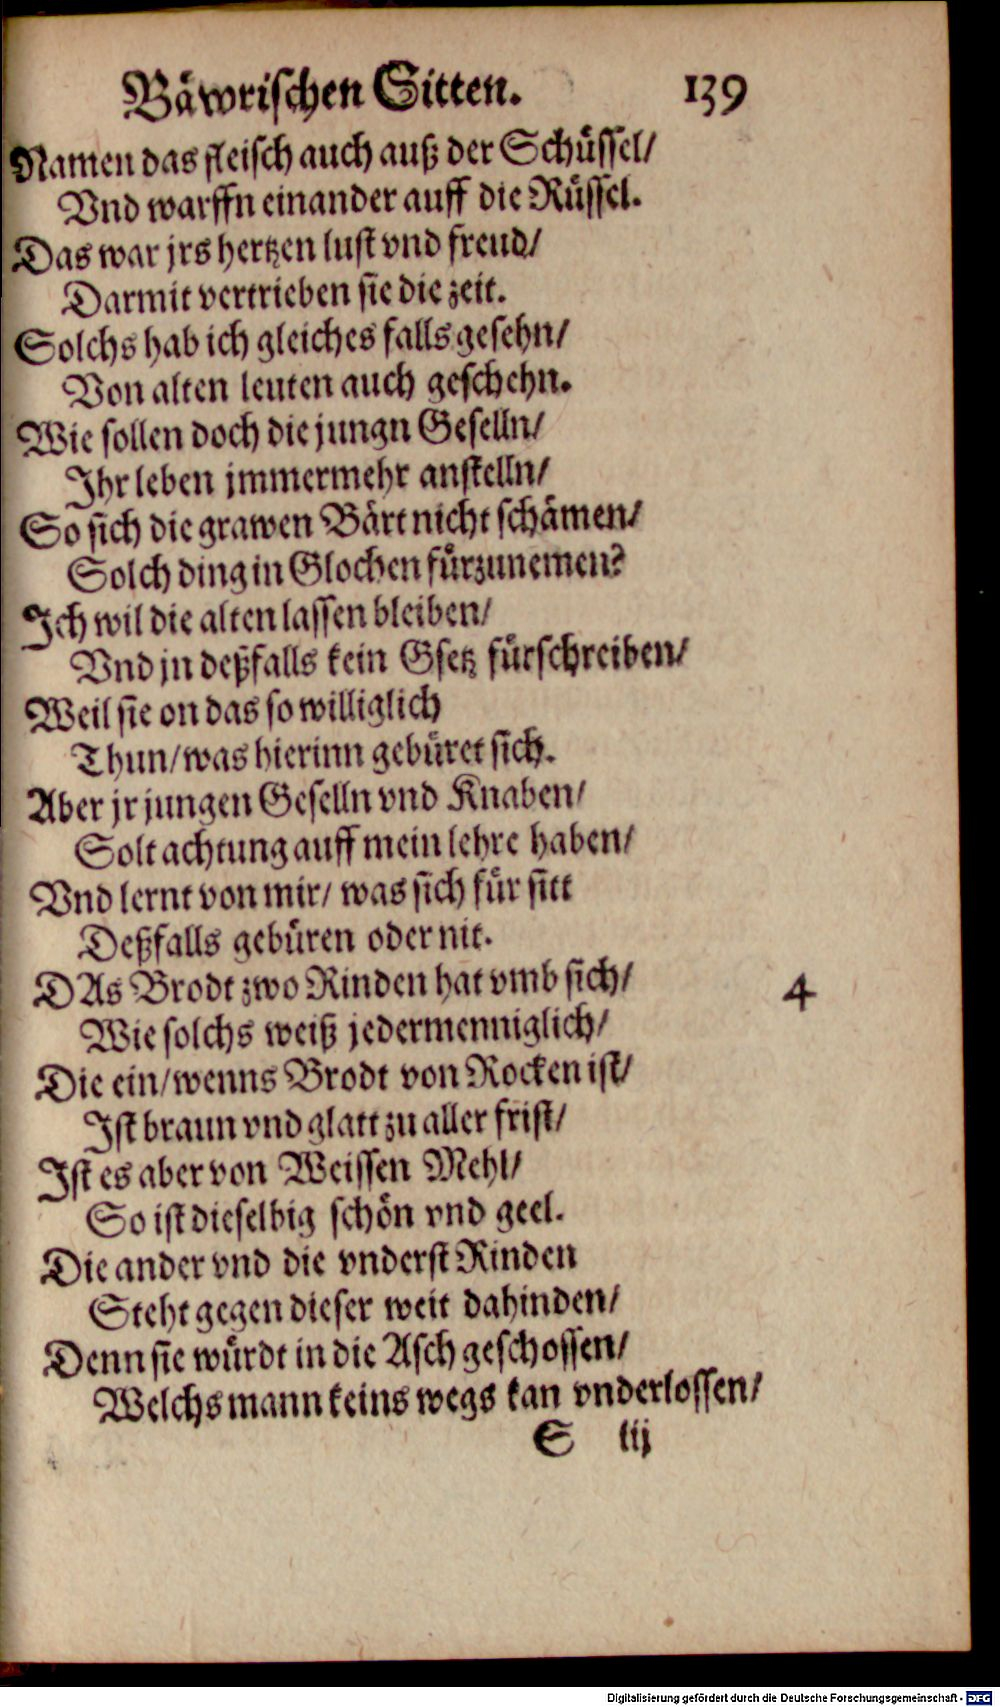 Bäwrischen Sitten. 139
Namen das fleisch auch auß der Schüssel/
Vnd warffn einander auff die Rüssel.
Das war jrs hertzen lust vnd freud/
Darmit vertrieben sie die zeit.
Solchs hab ich gleiches falls gesehn/
Von alten leuten auch geschehn.
Wie sollen doch die jungn Geselln/
Ihr leben jmmermehr anstelln/
So sich die grawen Bärt nicht schämen/
Solch ding in Glochen fürzunemen?
Ich wil die alten lassen bleiben/
Vnd jn deßfalls kein Gsetz fürschreiben/
Weil sie on das so williglich
Thun/was hierinn gebüret sich.
Aber jr jungen Geselln vnd Knaben/
Solt achtung auff mein lehre haben/
Vnd lernt von mir/ was sich für sitt
Deßfalls gebüren oder nit.
DAs Brodt zwo Rinden hat vmb sich/ 4
Wie solchs weiß jedermenniglich/
Die ein/wenns Brodt von Rocken ist/
Ist braun vnd glatt zu aller frist/
Ist es aber von Weissen Mehl/
So ist dieselbig schön vnd geel.
Die ander vnd die vnderst Rinden
Steht gegen dieser weit dahinden/
Denn sie würdt in die Asch geschossen/
Welchs mann keins wegs kan vnderlossen/
S iij
Digitalisierung gefördert durch die Deutsche Forschungsgemeinschaft - DFG